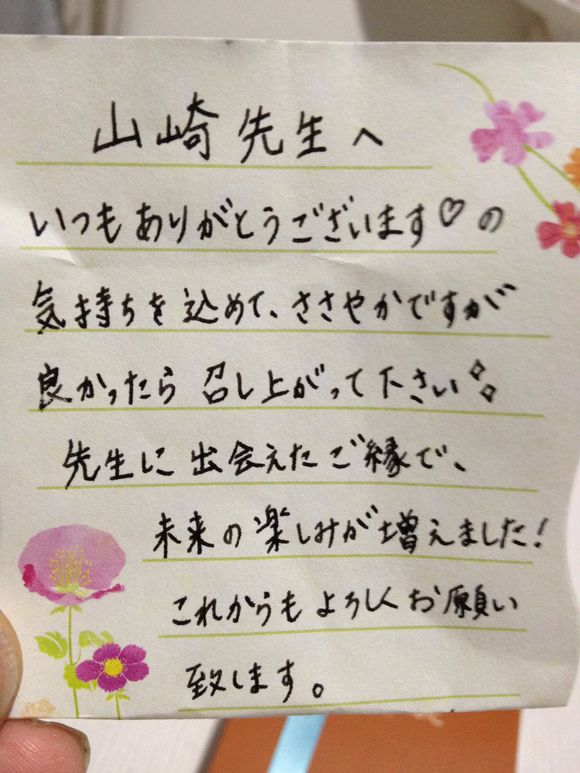 山崎先生へ
いつもありがとうございます♡の
気持ちを込めて、ささやかですが
良かったら召し上がって下さい✧✧
先生に出会えたご縁で、
未来の楽しみが増えました!
これからもよろしくお願い
致します。